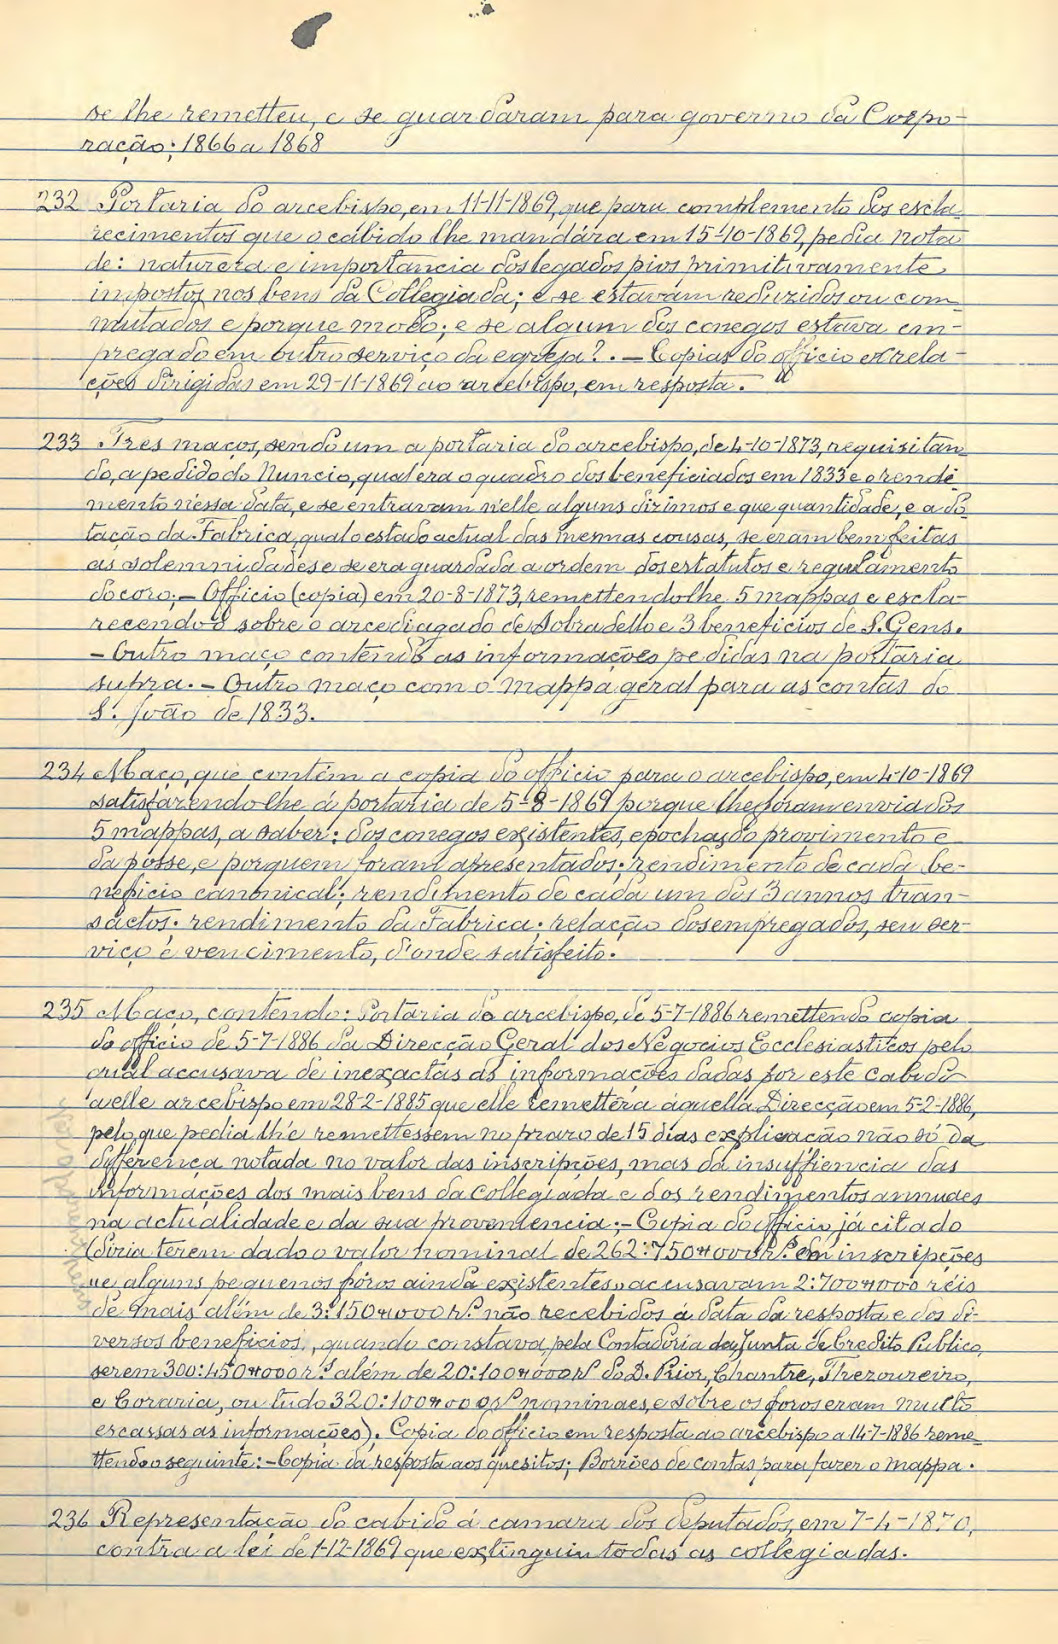 se lhe remetteu, e se guardaram para governo da Corpo-
ração; 1866 a 1868
232 Portaria do arcebispo, em 11-11-1869, que para complemento dos escla-
recimentos que o cabido lhe mandára em 15-10-1869, pedia nota
de: natureza e importancia dos legados pios primitivamente
impostos nos bens da Collegiada; e se estavam reduzidos ou com-
mutados e porque modo; e se algum dos conegos estava em-
pregado em outro serviço da egreja?. — Copias do officio e rela-
ções dirigidas em 29-11-1869 ao arcebispo, em resposta.
233 Tres maços, sendo um a portaria do arcebispo, de 4-10-1873, requisitan-
do, a pedido do Nuncio, qual era o quadro dos beneficiados em 1833 e o rendi-
mento nessa data, e se entravam n'elle alguns dizimos e que quantidade, e a do-
tação da Fabrica, qual o estado actual das mesmas cousas, se eram bem feitas
as solemnidades e se era guardada a ordem dos estatutos e regulamento
do coro; — Officio (copia) em 20-8-1873, remettendo lhe 5 mappas e escla-
recendo-o sobre o arcediagado de Sobradello e 3 beneficios de S. Gens.
— Outro maço contendo as informações pedidas na portaria
supra. — Outro maço com o mappa geral para as contas do
S. João de 1833.
234 Maço, que contém a copia do officio para o arcebispo, em 4-10-1869
satisfazendo lhe á portaria de 5-8-1869 porque lhe foram enviados
5 mappas, a saber: dos conegos existentes, epocha do provimento e
da posse, e por quem foram apresentados; rendimento de cada be-
neficio canonical; rendimento de cada um dos 3 annos tran-
sactos. rendimento da Fabrica. relação dos empregados, seu ser-
viço e vencimento, d'onde satisfeito.
235 Maço, contendo: Portaria do arcebispo, de 5-7-1886 remettendo copia
do officio de 5-7-1886 da Direcção Geral dos Negocios Ecclesiasticos pelo
qual accusava de inexactas as informações dadas por este Cabido
a elle arcebispo em 28-2-1885 que elle remettêra áquella Direcção em 5-2-1886,
pelo que pedia lhe remettessem no prazo de 15 dias explicação não só da
differença notada no valor das inscripções, mas da insuffiencia das
informações dos mais bens da Collegiada e dos rendimentos annuaes
na actualidade e da sua proveniencia; — Copia do officio, já citado
(diria terem dado o valor nominal de 262:750#000 rs. em inscripções
"e alguns pequenos fóros ainda existentes", accusavam 2:700#000 réis
de mais além de 3:150#000 rs. não recebidos á data da resposta e dos di-
versos beneficios, quando constava, pela Contadoria da Junta de Credito Publico,
serem 300:450#000 rs. além de 20:100#000 rs. do D. Prior, Chantre, Thezoureiro,
e Coraria, ou tudo 320:100#000 rs. nominaes, e sobre os foros eram muito
escassas as informações). Copia do officio em resposta ao arcebispo a 14-7-1886 reme-
ttendo o seguinte: — Copia da resposta aos quesitos; Borrões de contas para fazer o mappa.
236 Representação do cabido á camara dos deputados, em 7-4-1870,
contra a lei de 1-12-1869 que extinguiu todas as collegiadas.